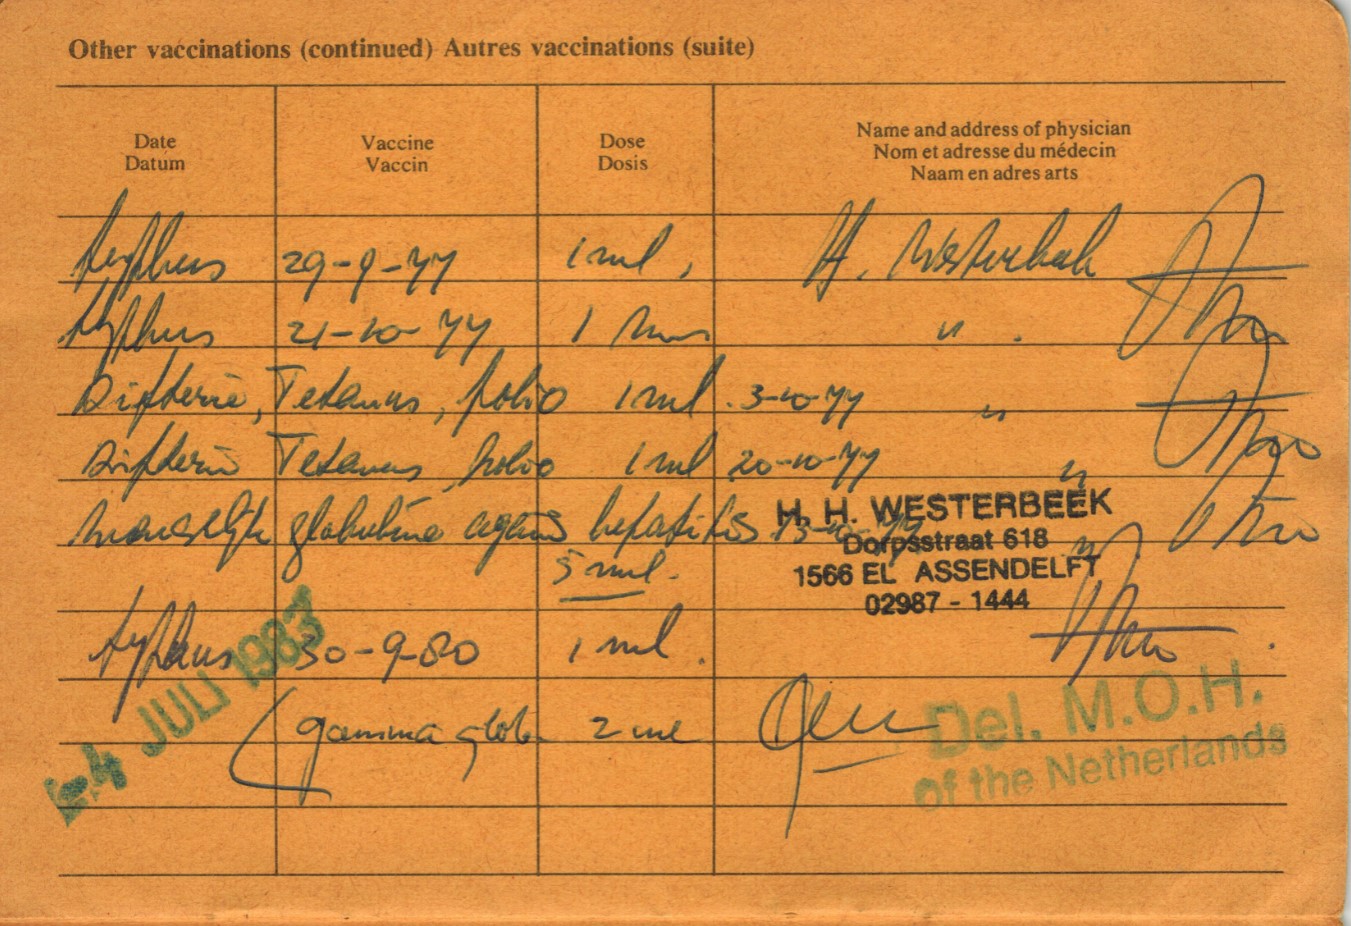 Other vaccinations (continued) Autres vaccinations (suite)
Date
Datum
Vaccine
Vaccin
Dose
Dosis
Name and address of physician
Nom et adresse du médecin
Naam en adres arts
typhus 29-9-77 1 ml. H. Westerbeek
typhus 21-10-77 1 " .
Difterie, Tetanus, polio 1 ml. 3-10-77 "
Difterie Tetanus, polio 1 ml 20-10-77 "
menselijk globuline hepatitis
5 ml.
H. H. WESTERBEEK
Dorpsstraat 618
1566 EL ASSENDELFT
02987 - 1444
typhus 30-9-80 1 ml.
-4 JULI 1983
gamma glob. 2 ml
Del. M.O.H.
of the Netherlands